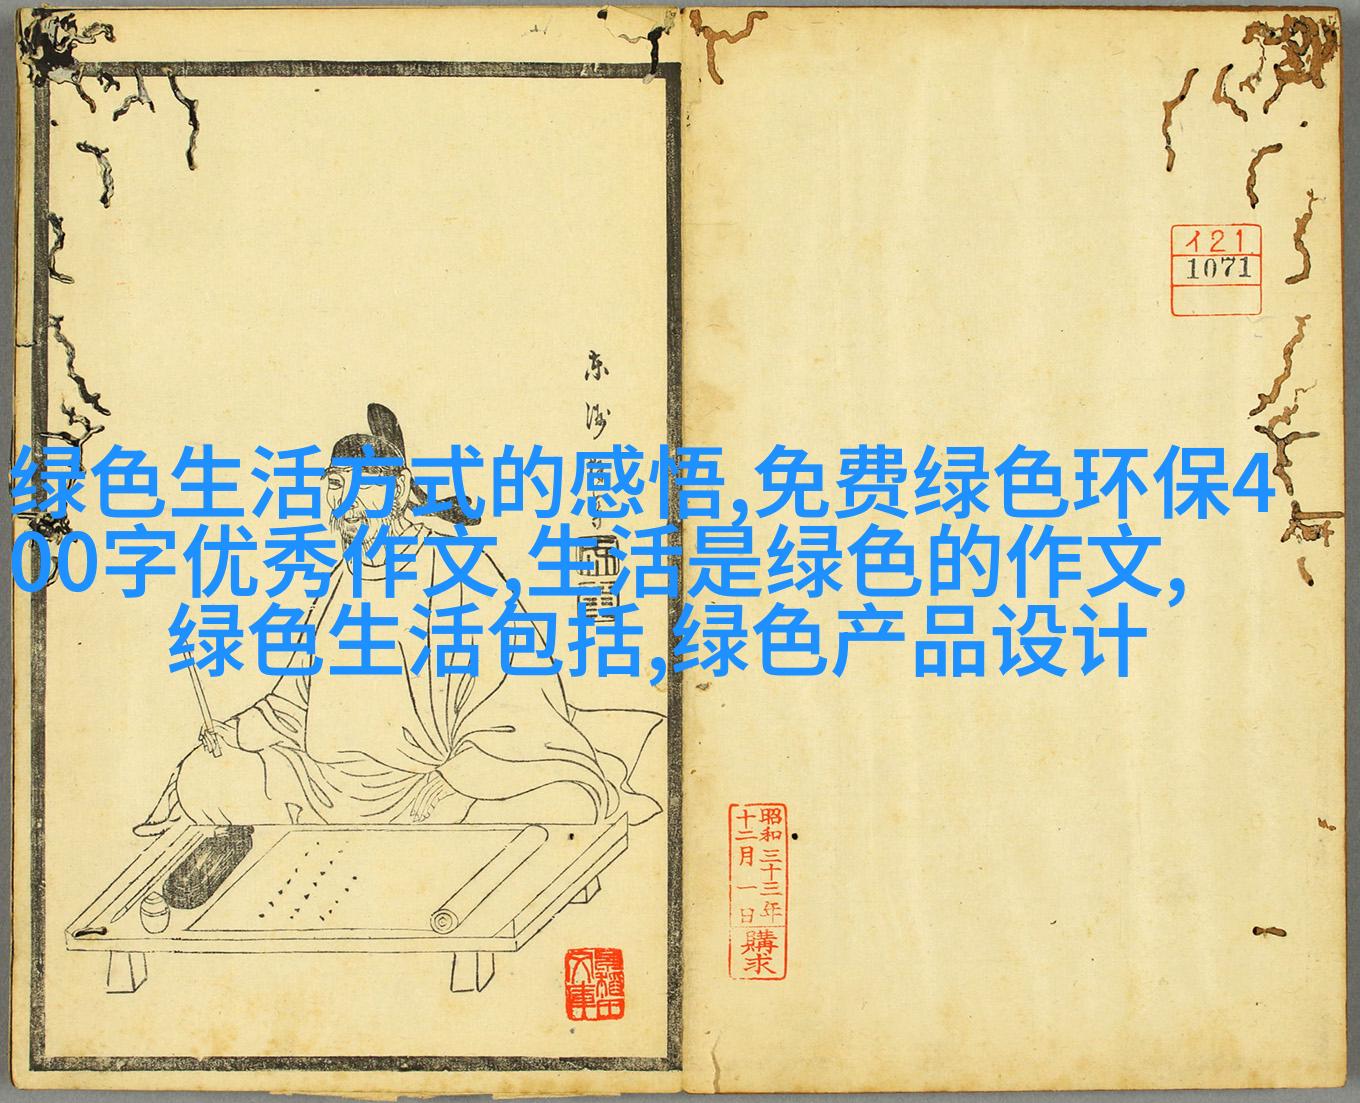 绿色生活方式的感悟,免费绿色环保4
00字优秀作文,生活是绿色的作文,
绿色生活包括,绿色产品设计
イ21
1071
昭和三十三年
十二月一日
購求